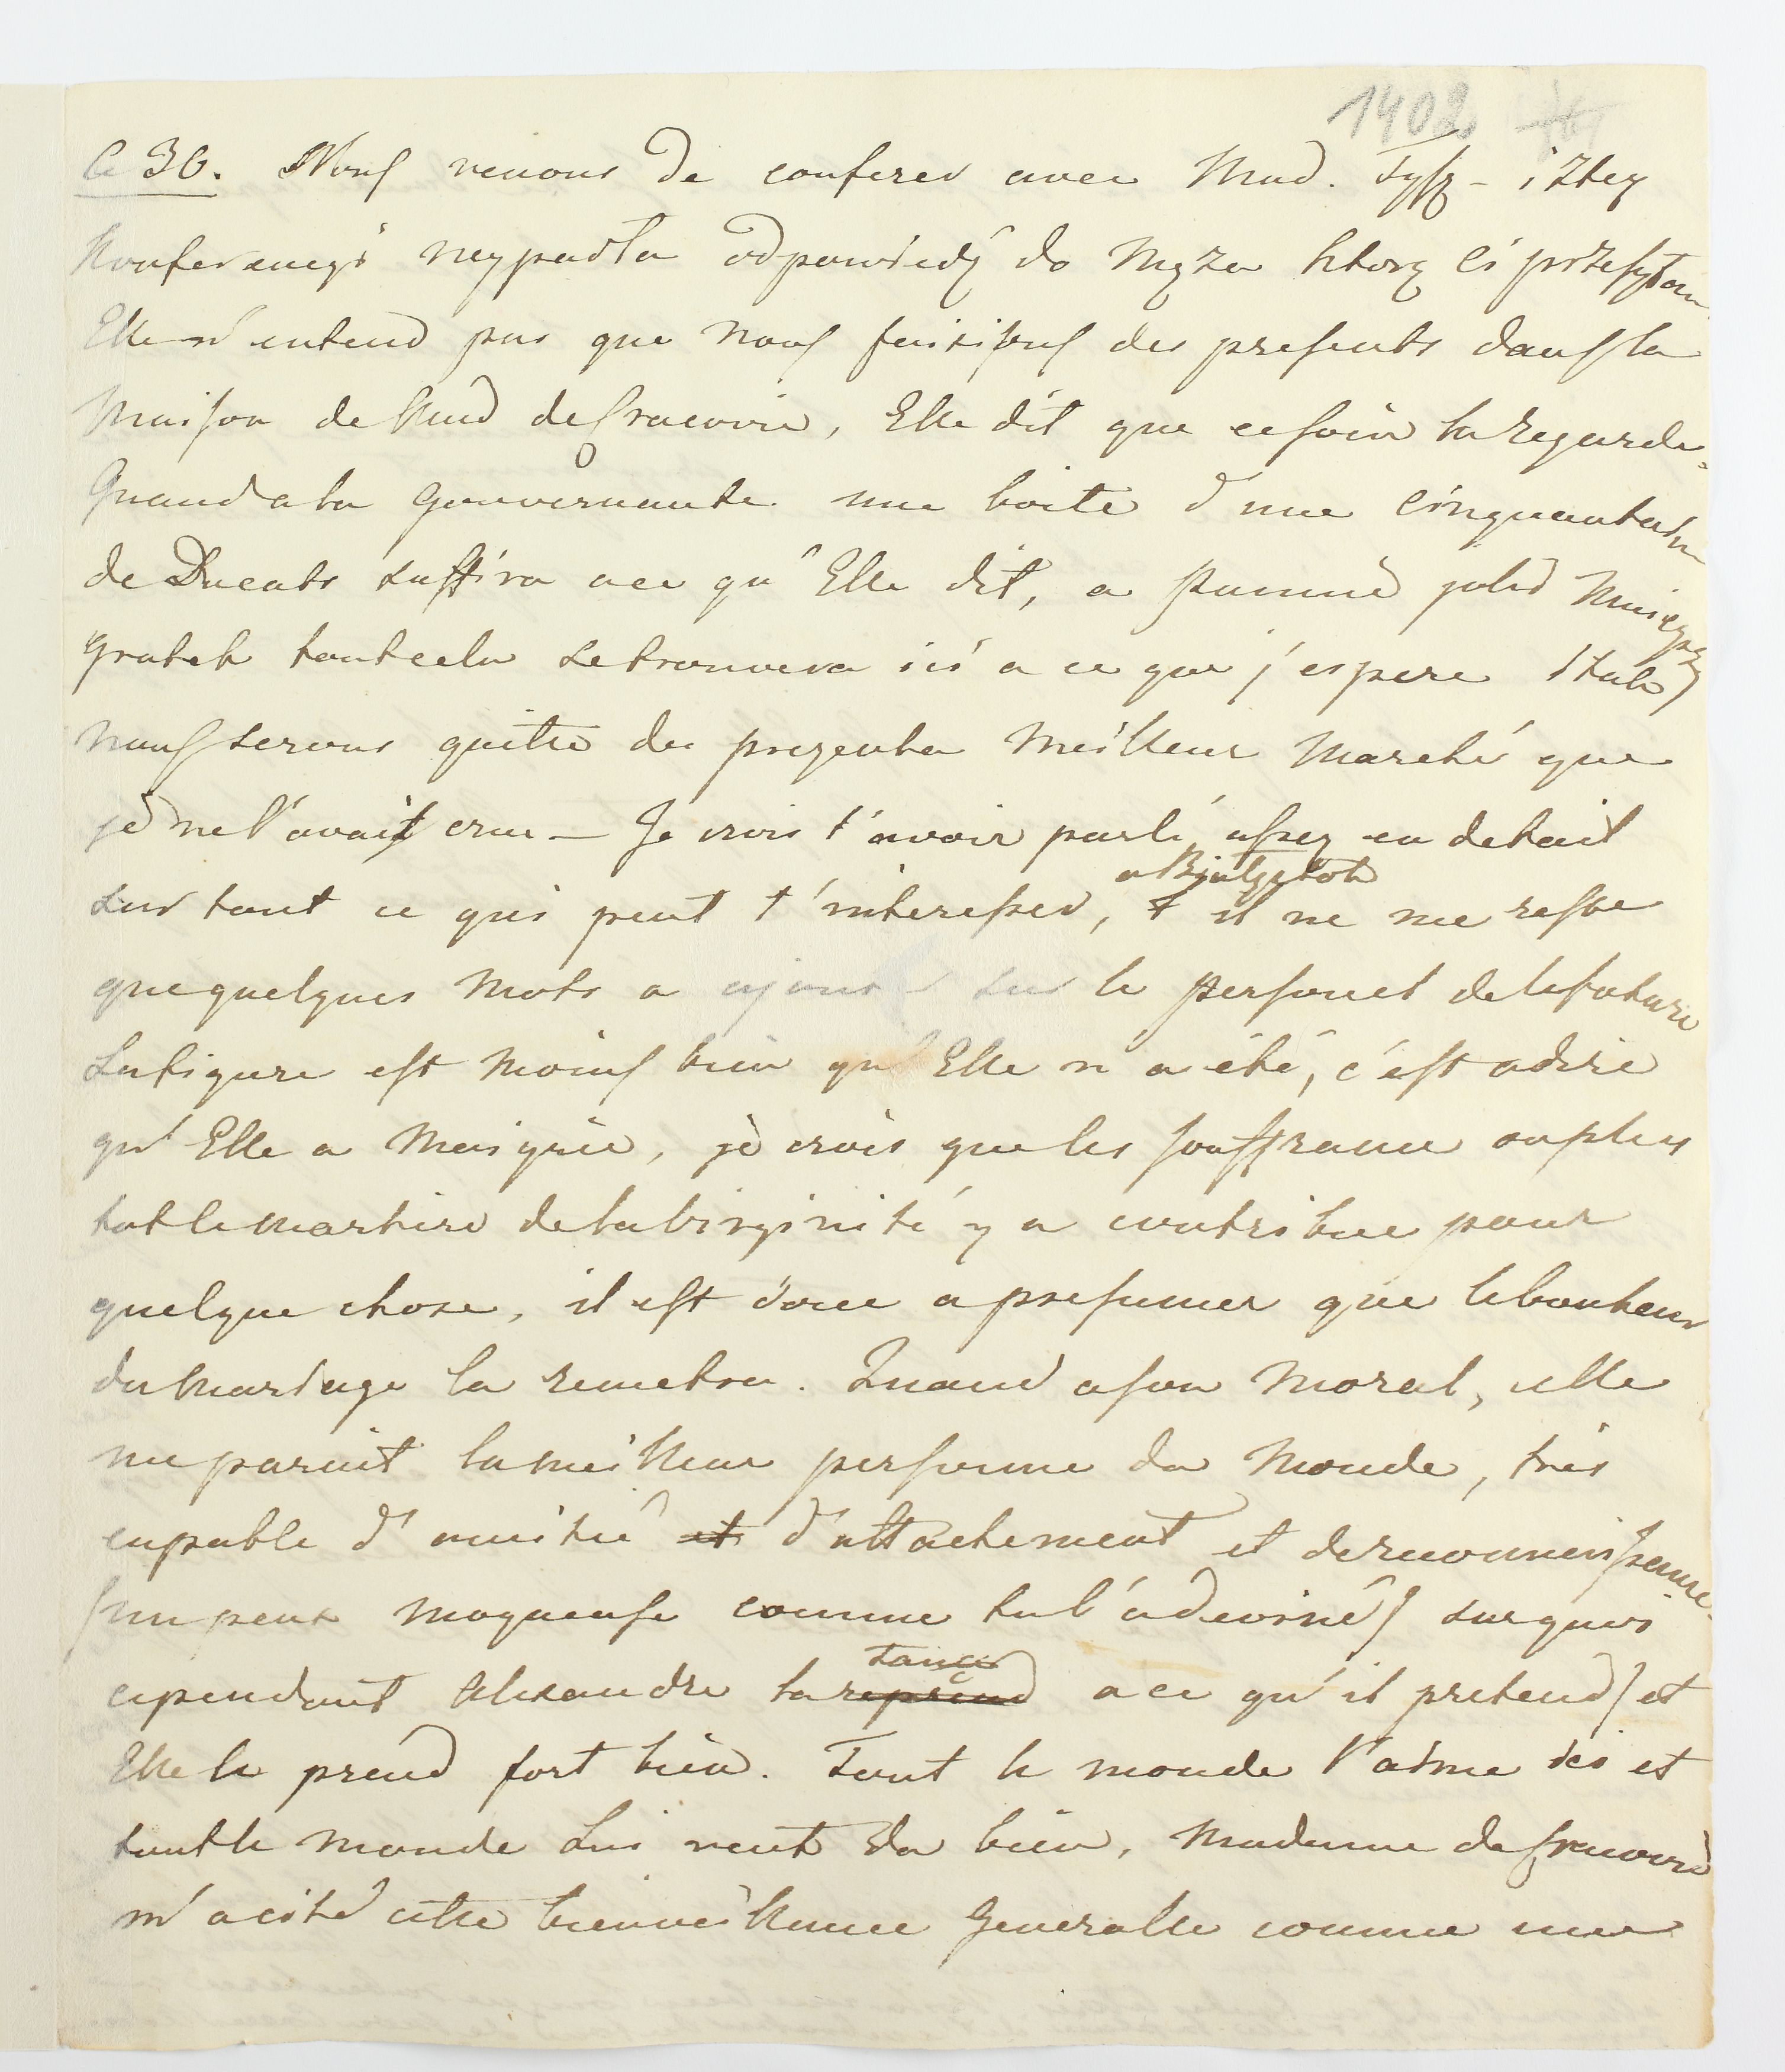 1402
Ce 30. Nous venons de conferer avec Mad. Tysz - i z tey
Konferencyi wypadła odpowiedź do Męża ktorą ci przesyłam
Elle n'entend pas que nous faisions des presents dans la
Maison de Mad de Cracovie, Elle dit que ce soin la regarde.
Quand a la Gouvernante une boite d'une cinquantaine
de Ducats suffira a ce qu'Elle dit, a Pannie jakis
gratek tout cela se trouvera ici a ce que j'espere
nous serons quitte de prezenta Meilleur Marché que
je ne l'avait crue — Je crois t'avoir parlé assez en detail
a Bialystok
sur tout ce qui peut t'interesser, il ne me reste
que quelques Mots a ajouter sur le personel de la future
La figure est Moins bien qu'Elle n'a été, c'est a dire
qu'Elle a Maigrie, je crois que les souffrance ou plus
tot le martire de la virginité y a contribue pour
quelque chose, il est donc a presumer que le bonheur
du Mariage la remetra. Quand a son Moral, elle
me parait la meilleur personne du Monde, très
capable d'amitié et d'attachement et de reconnaissance
/un peut moqueuse comme tu l'a deviné/ sur quoi
tance
cependant Alexandre la reprend a ce qu'il pretend/ et
Elle le prend fort bien. Tout le monde l'aime ici et
tout le monde Lui veut du bien, Madame de Cracovie
m'a cité cette bienveillance Generalle comme une